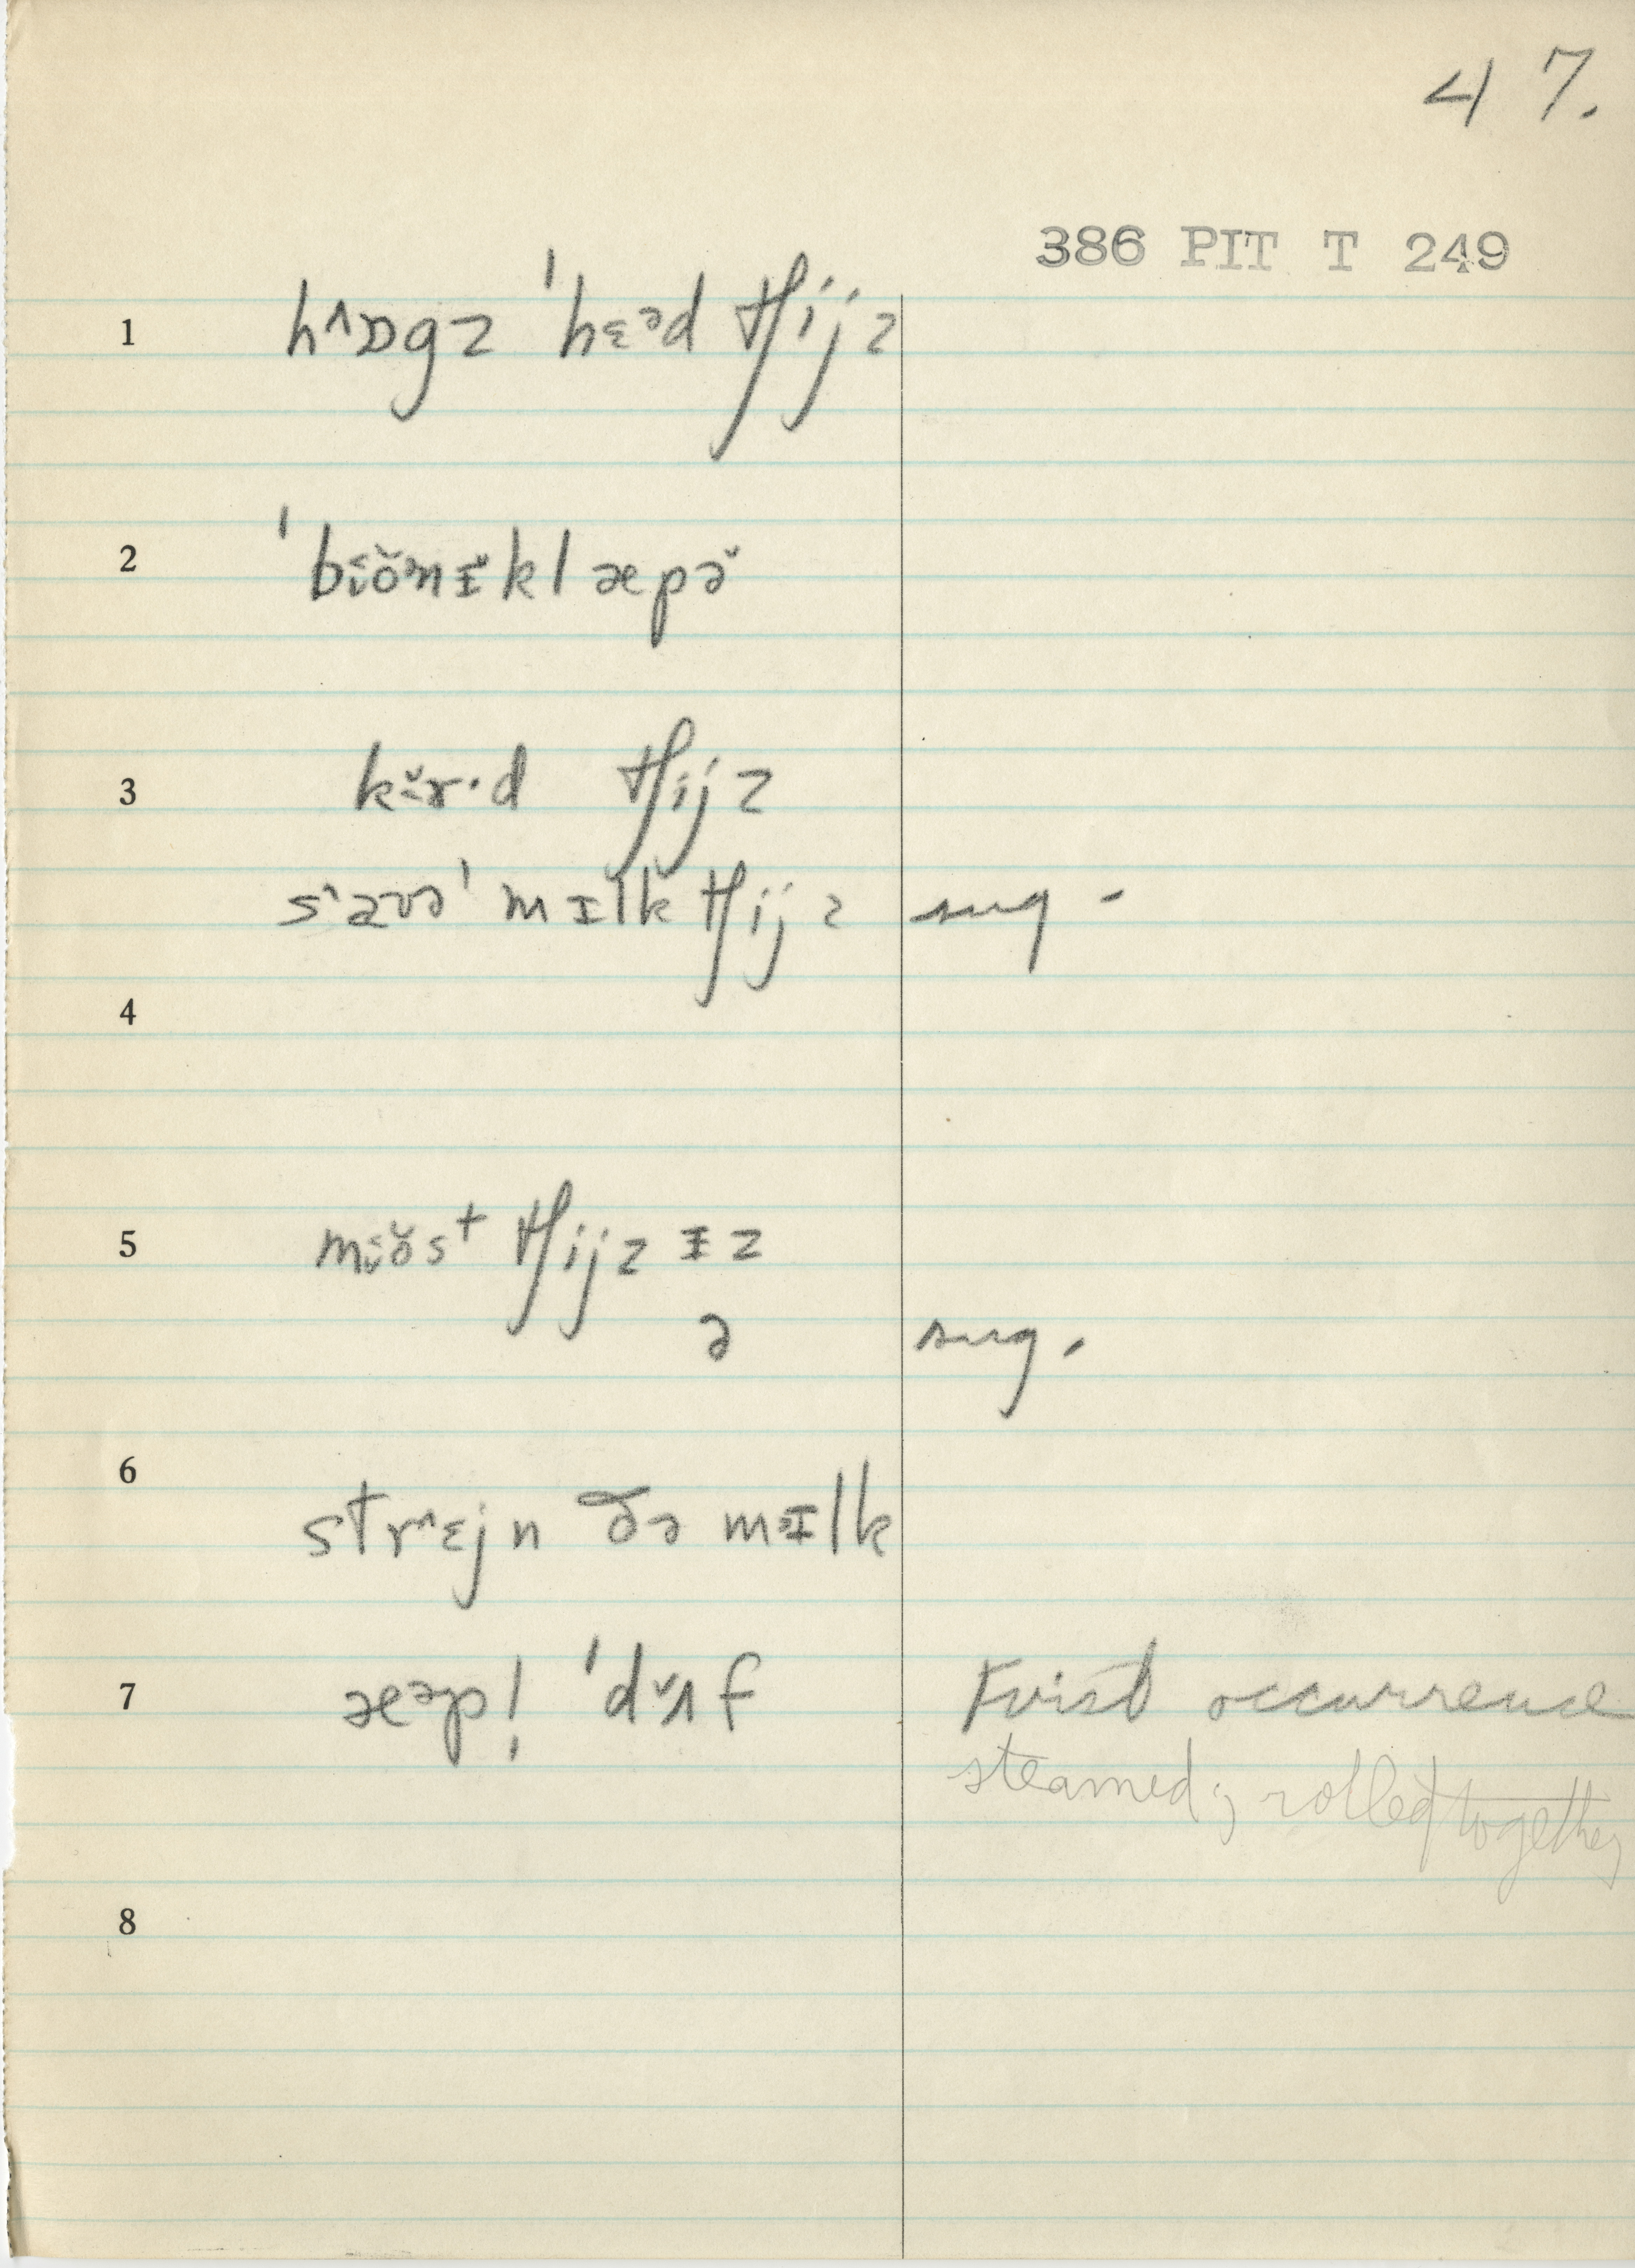 47.
386 PIT T 249
1 h˄ɒgz ˈhɛᵊd tʃijz
2 ˈbɪ̂ŏnɪ̆klæpə̆
3 kɜ̆r·d tʃijz
s˄aʊəˈmɪlk tʃijz sug-
4
5 mɪ̂ŏst tʃijz ɪz
ə sug.
6 str˄ɛjn ðə mɪlk
7 æᵊpl̩ ˈd˅ʌf First occurrence
steamed; rolled together
8